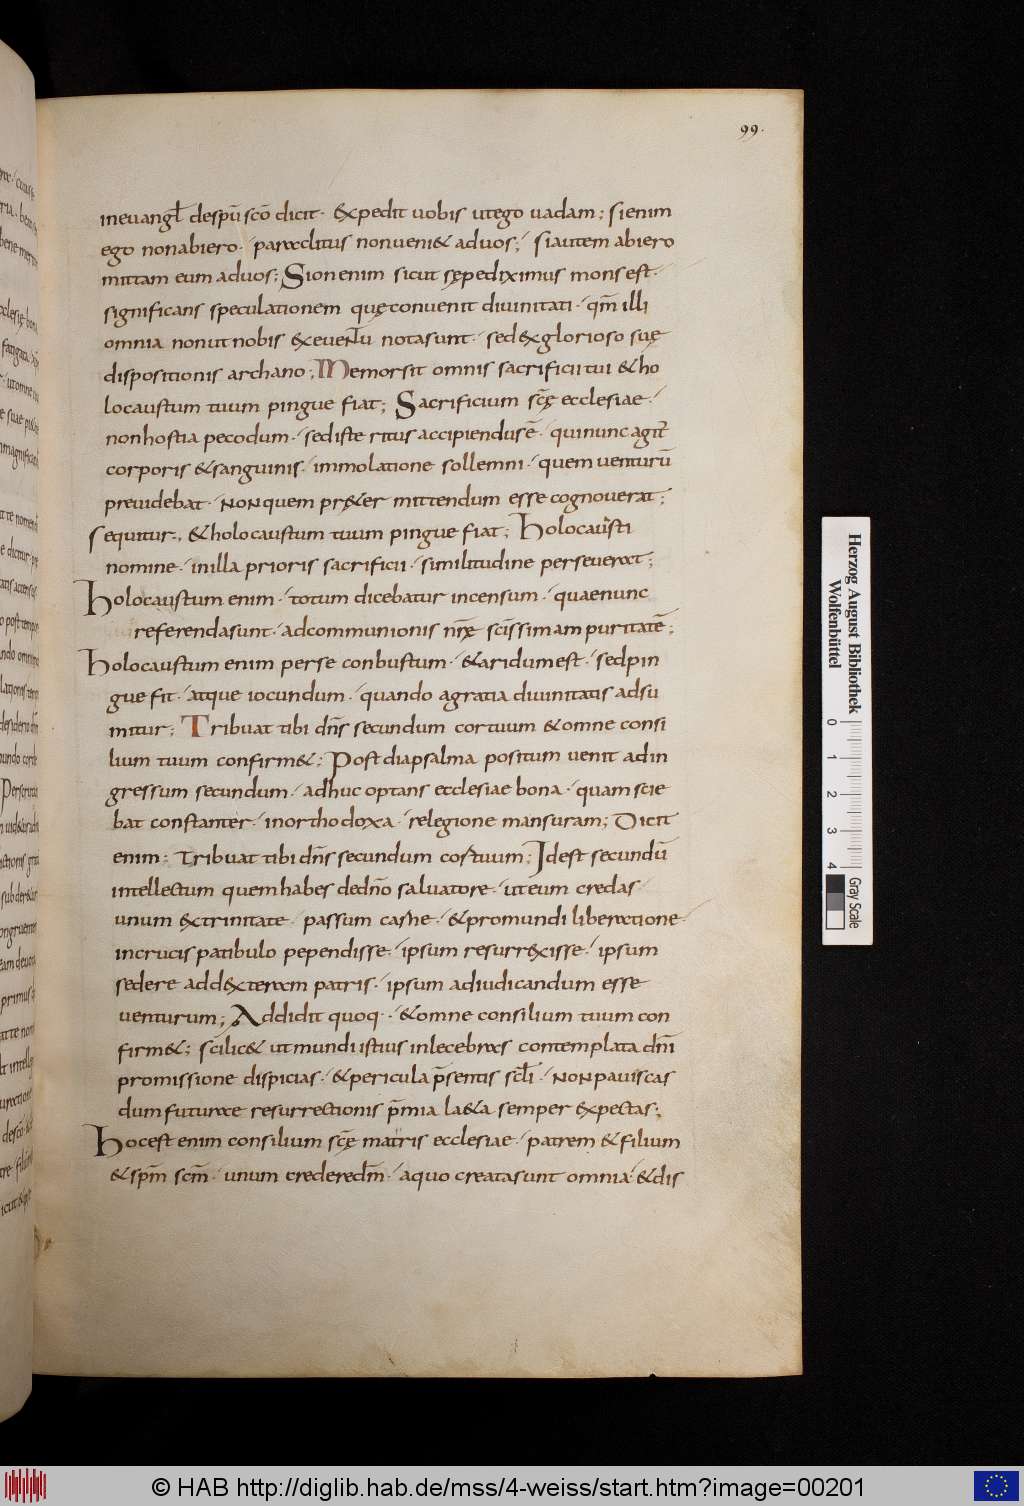 99.
inevangł despū scō dicit· &xpedit vobis ut ego vadam; sienim
ego non abiero· paraclitus non veni& ad vos; si autem abiero
mittam eum ad vos; Sion enim sicut sępe diximus mons est·
significans speculationem quę convenit divinitati· qm̄ illi
omnia non ut nobis ex evenłu nota sunt· sed &x glorioso suę
dispositionis archano; Memor sit omnis sacrificii tui & ho
locaustum tuum pingue fiat; Sacrificium scę̄ ecclesiae·
non hostia pecodum· sed iste ritus accipiendus ē· qui nunc agit̄
corporis & sanguinis· immolatione sollemni· quem venturū
previdebat· non quem pręter mittendum esse cognoverat;
sequitur·, & holocaustum tuum pingue fiat; Holocausti
nomine· in illa prioris sacrificii· similitudine perseverat;
Holocaustum enim· totum dicebatur incensum· quae nunc
referenda sunt· ad communionis nrę̄ scissimam puritatē;
Holocaustum enim per se conbustum· & aridum est· sed pin
gue fit· atque iocundum· quando a gratia divinitatis adsu
mitur; Tribuat tibi dn̄s secundum cor tuum & omne consi
lium tuum confirm&; Post diapsalma positum venit ad in
gressum secundum· adhuc optans ecclesiae bona· quam scie
bat constanter· in orthodoxa· relegione mansuram; Dicit
enim; Tribuat tibi dn̄s secundum cor tuum; Id est secundū
intellectum quem habes de dn̄o salvatore· ut eum credas
unum ex trinitate· passum carne· & pro mundi liberatione·
in crucis patibulo pependisse· ipsum resurr&xisse· ipsum
sedere ad d&xteram patris· ipsum ad iudicandum esse
venturum; Addidit quoq·· & omne consilium tuum con
firm&; scilic& ut mundi istius inlecebras contemplata dn̄i
promissione dispicias· & pericula p̄sentis scłi· non paviscas
dum futurae resurrectionis p̄mia la&a semper &xpectas;
Hoc est enim consilium scę̄ matris ecclesiae· patrem & filium
& spm̄ scm̄· unum credere dm̄· a quo creata sunt omnia· & dis
Herzog August Bibliothek
Wolfenbüttel
0 1 2 3 4
Gray Scale
© HAB http://diglib.hab.de/mss/4-weiss/start.htm?image=00201